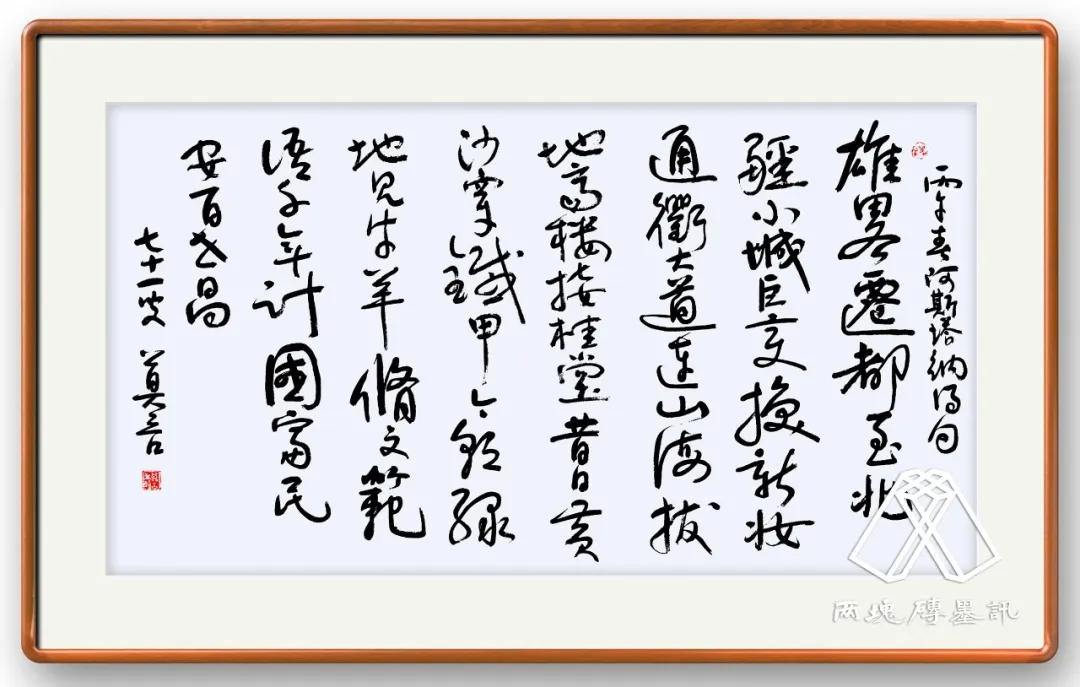 丙午春阿斯塔纳得句
雄畧遷都至北
疆小城巨变換新妆
通衢大道连山海拔
地高楼接桂堂昔日黄
沙穿鐵甲今朝绿
地见牛羊脩文範
语千年计國富民
安百世昌
七十一叟 莫言
两塊磚墨訊